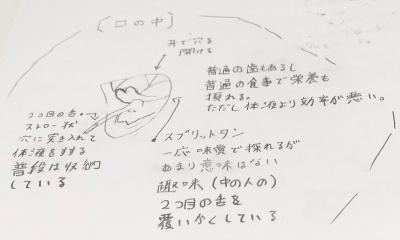 [口の中]
牙で穴を
開ける
普通の歯もあるし
普通の食事で栄養も
摂れる。
ただし体液より効率が悪い。
2コ目の舌
ストロー状
穴に突き入れて
体液をすする
普段は収納
している
スプリットタン
一応味覚で採れるが
あまり意味はない
趣味(中の人の)
2コ目の舌を
覆いかくしている